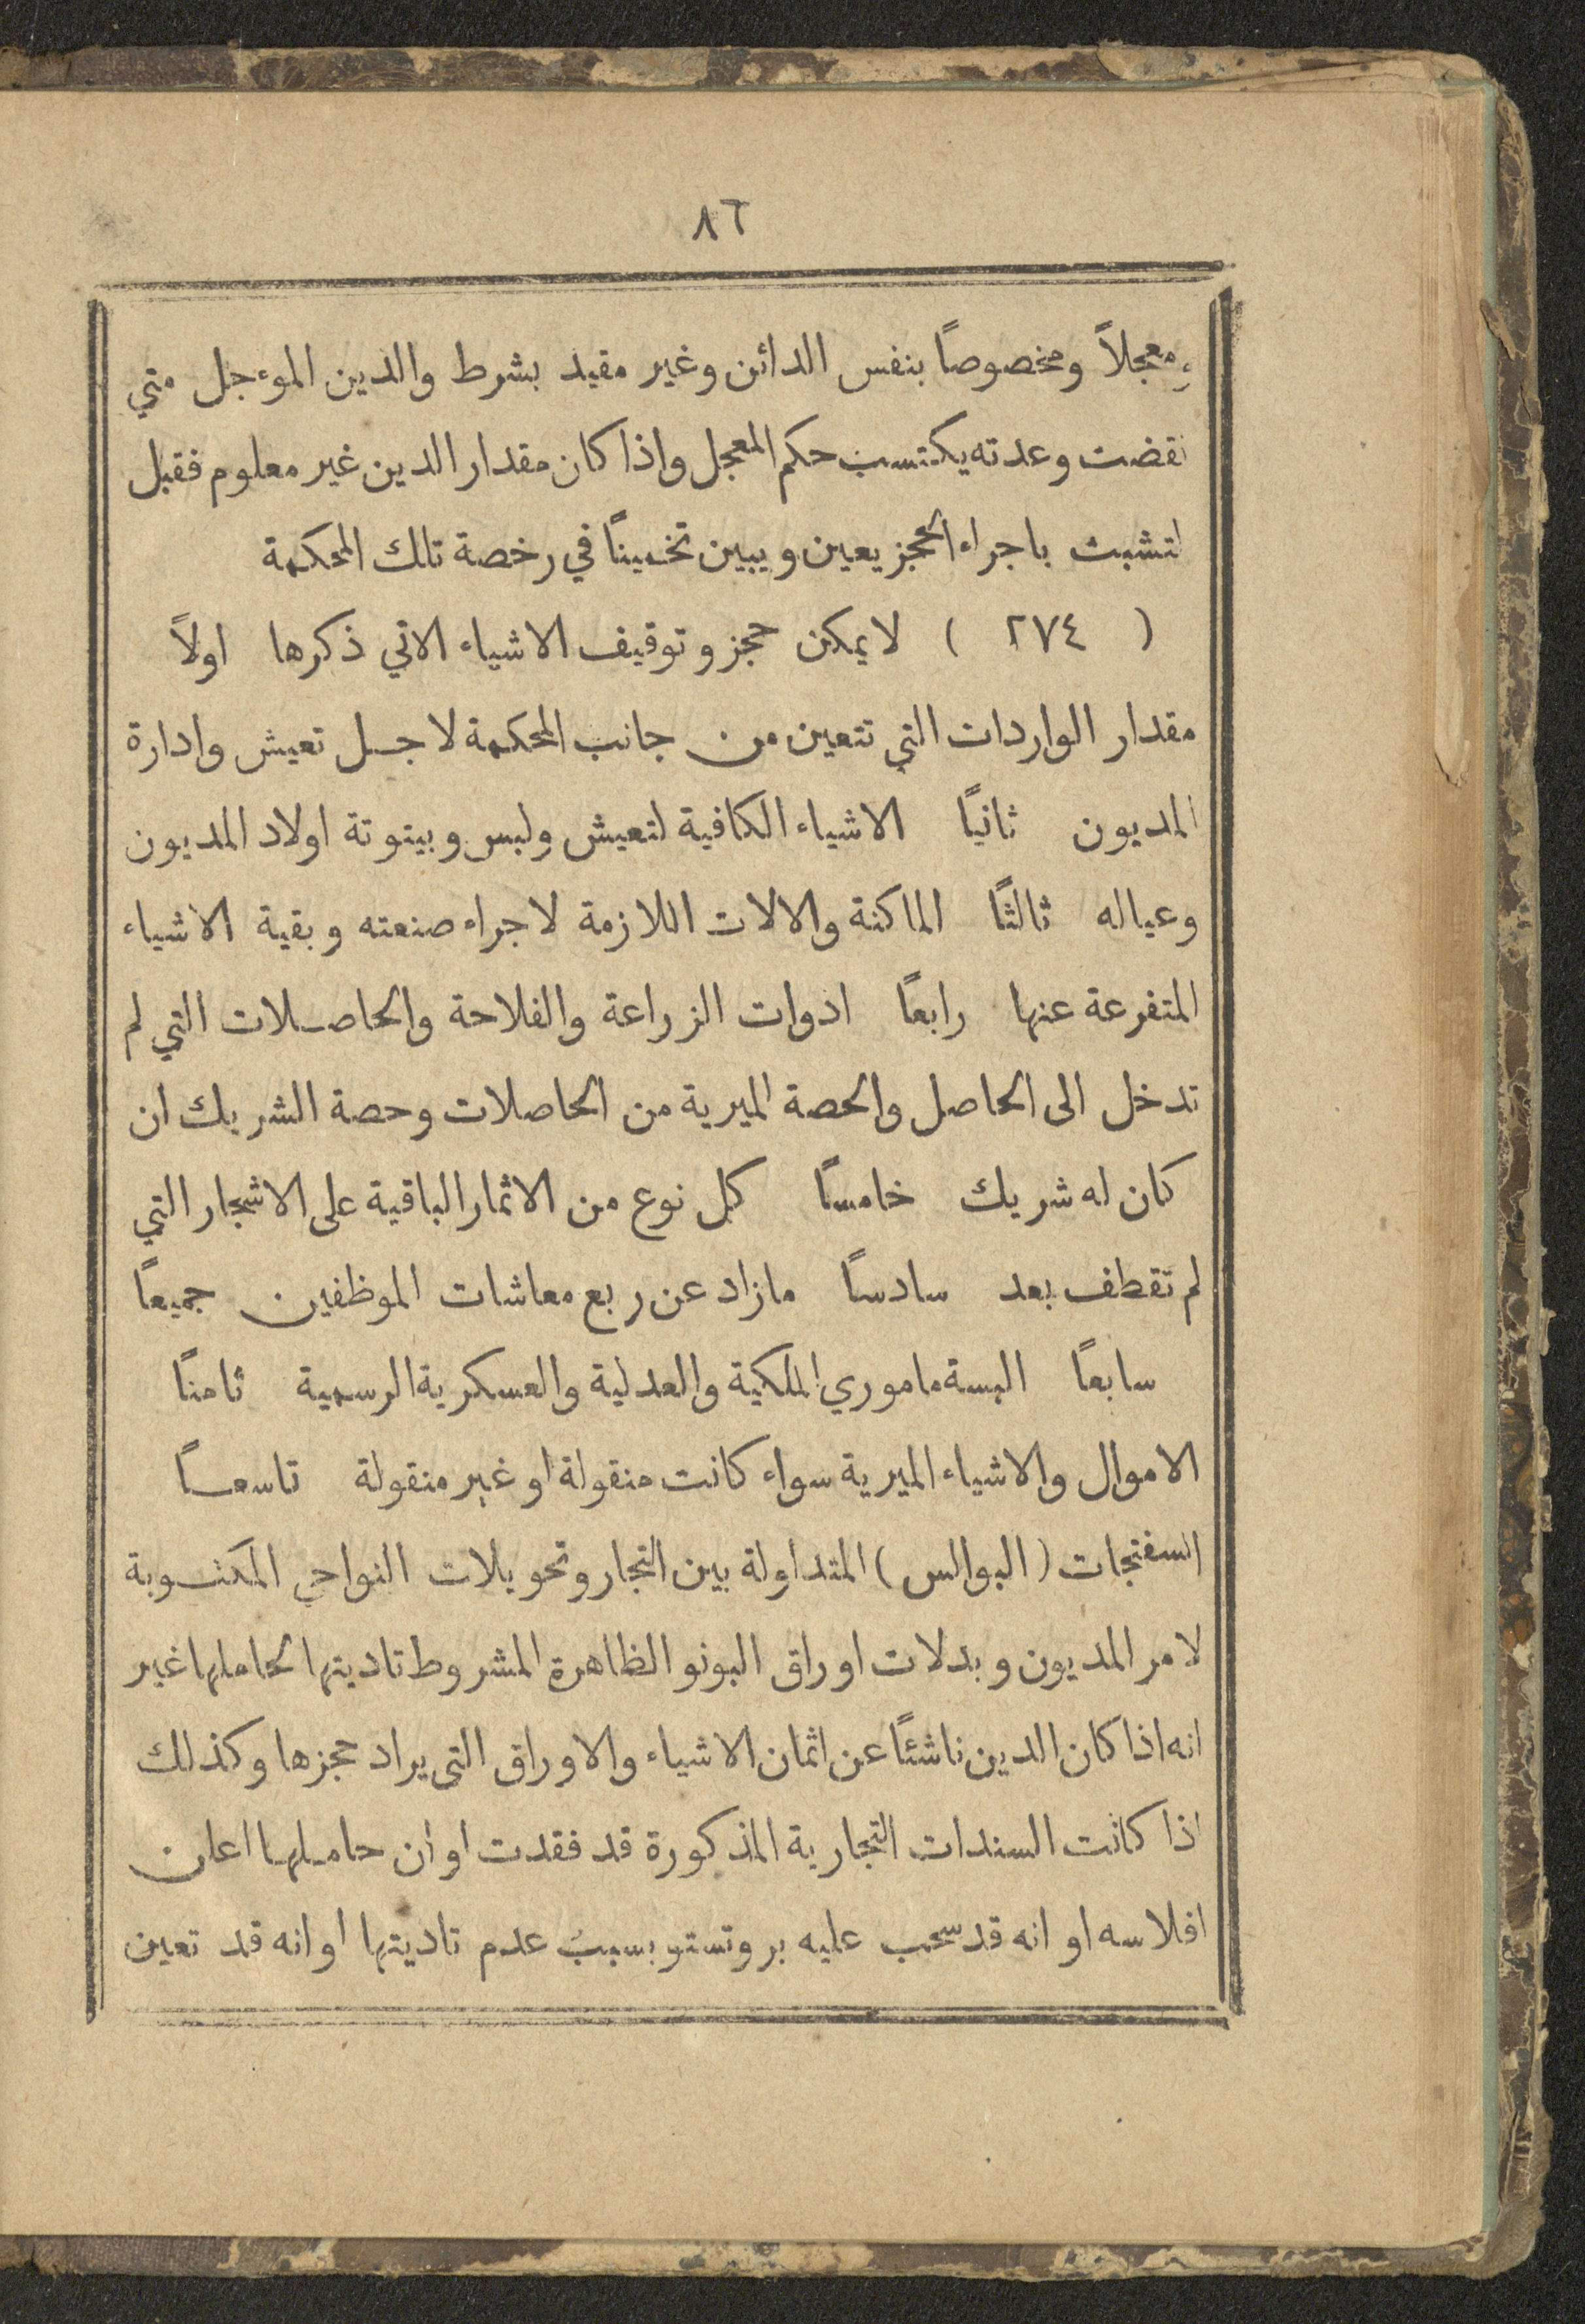 ٨٦
ومعجلاً ومخصوصاً بنفس الدائن وغير مقيد بشرط والدين الموءجل متي
نقضت وعدته يكتسب حكم المعجل واذا كان مقدار الدين غير معلوم فقبل
لتشبث باجراء الحجز يعين ويبين تخميناً في رخصة تلك المحكمة
( ٢٧٤ ) لا يمكن حجز وتوقيف الاشياء الاتي ذكرها اولاً
مقدار الواردات التي تتعين من جانب المحكمة لاجل تعيش وادارة
المديون ثانياً الاشياء الكافية لتعيش ولبس وبيتوتة اولاد المديون
وعياله ثالثاً الماكنة والالات اللازمة لاجراء صنعته وبقية الاشياء
المتفرعة عنها رابعاً ادوات الزراعة والفلاحة والحاصلات التي لم
تدخل الى الحاصل والحصة الميرية من الحاصلات وحصة الشريك ان
كان له شريك خامساً كل نوع من الاثمار الباقية على الاشجار التي
لم تقطف بعد سادساً مازاد عن ربع معاشات الموظفين جميعاً
سابعاً البسة ماموري الملكية والعدلية والعسكرية الرسمية ثامناً
الاموال والاشياء الميرية سواء كانت منقولة او غير منقولة تاسعاً
السفتجات (البوالس) المتداولة بين التجار وتحويلات النواحي المكتوبة
لامر المديون وبدلات اوراق البونو الظاهرة المشروط تاديتها لحاملها غير
انه اذا كان الدين ناشئاً عن اثمان الاشياء والاوراق التي يراد حجزها وكذلك
اذا كانت السندات التجارية المذكورة قد فقدت او ان حاملها اعلن
افلاسه او انه قد سحب عليه بروتستو بسبب عدم تاديتها او انه قد تعين